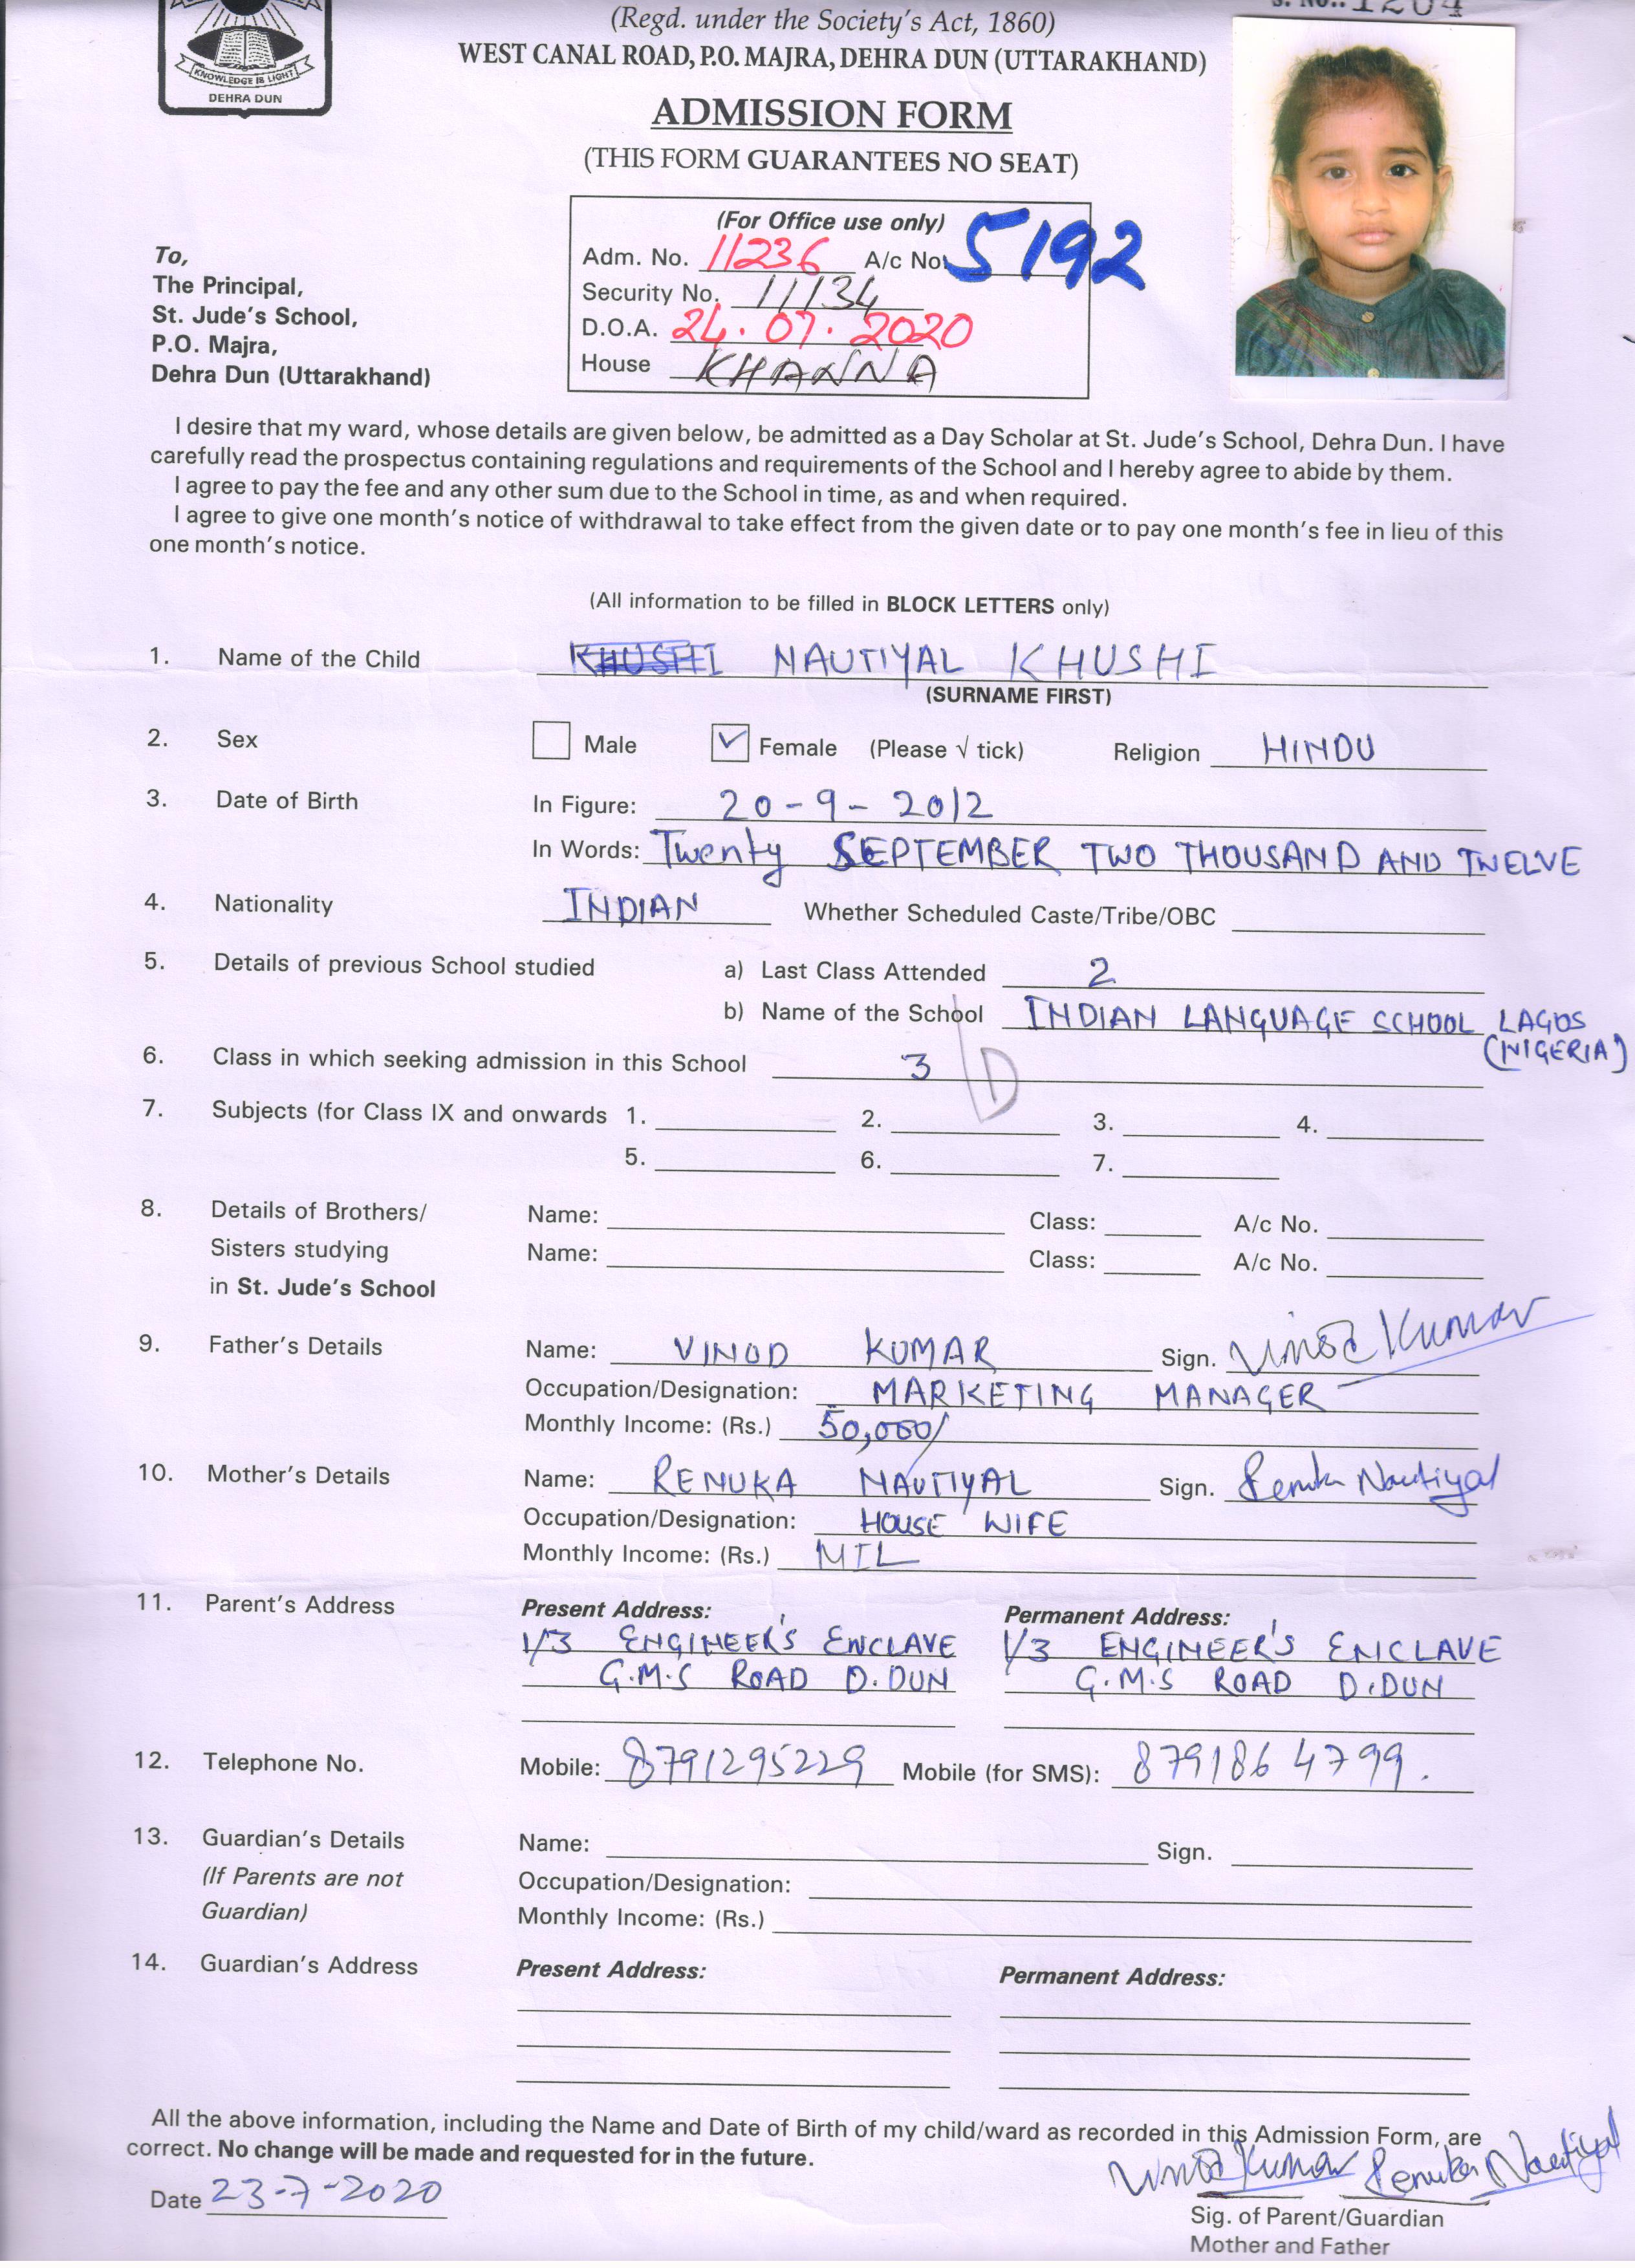 (Regd. under the Society's Act, 1860)
S. No.: 1204
WEST CANAL ROAD, P.O. MAJRA, DEHRA DUN (UTTARAKHAND)
KNOWLEDGE IS LIGHT
DEHRA DUN
ADMISSION FORM
(THIS FORM GUARANTEES NO SEAT)
(For Office use only)
Adm. No. 11236 A/c No. 5192
Security No. 11134
D.O.A. 24.07.2020
House KHANNA
To,
The Principal,
St. Jude's School,
P.O. Majra,
Dehra Dun (Uttarakhand)
I desire that my ward, whose details are given below, be admitted as a Day Scholar at St. Jude's School, Dehra Dun. I have
carefully read the prospectus containing regulations and requirements of the School and I hereby agree to abide by them.
I agree to pay the fee and any other sum due to the School in time, as and when required.
I agree to give one month's notice of withdrawal to take effect from the given date or to pay one month's fee in lieu of this
one month's notice.
(All information to be filled in BLOCK LETTERS only)
1. Name of the Child KHUSHI NAUTIYAL KHUSHI
(SURNAME FIRST)
2. Sex Male ✓ Female (Please √ tick) Religion HINDU
3. Date of Birth In Figure: 20-9-2012
In Words: Twenty SEPTEMBER TWO THOUSAND AND TWELVE
4. Nationality INDIAN Whether Scheduled Caste/Tribe/OBC
5. Details of previous School studied a) Last Class Attended 2
b) Name of the School INDIAN LANGUAGE SCHOOL LAGOS
(NIGERIA)
6. Class in which seeking admission in this School 3 D
7. Subjects (for Class IX and onwards 1. 2. 3. 4.
5. 6. 7.
8. Details of Brothers/ Name: Class: A/c No.
Sisters studying Name: Class: A/c No.
in St. Jude's School
9. Father's Details Name: VINOD KUMAR Sign. Vinod Kumar
Occupation/Designation: MARKETING MANAGER
Monthly Income: (Rs.) 50,000/
10. Mother's Details Name: RENUKA NAUTIYAL Sign. Renuka Nautiyal
Occupation/Designation: HOUSE WIFE
Monthly Income: (Rs.) NIL
11. Parent's Address Present Address: Permanent Address:
1/3 ENGINEER'S ENCLAVE 1/3 ENGINEER'S ENCLAVE
G.M.S ROAD D.DUN G.M.S ROAD D.DUN
12. Telephone No. Mobile: 8791295229 Mobile (for SMS): 8791864799.
13. Guardian's Details Name: Sign.
(If Parents are not Occupation/Designation:
Guardian) Monthly Income: (Rs.)
14. Guardian's Address Present Address: Permanent Address:
All the above information, including the Name and Date of Birth of my child/ward as recorded in this Admission Form, are
correct. No change will be made and requested for in the future.
Vinod Kumar Renuka Nautiyal
Date 23-7-2020
Sig. of Parent/Guardian
Mother and Father